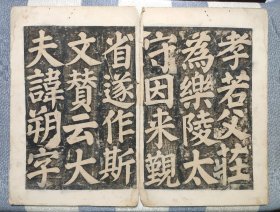 孝若父莊
為樂陵太
守因来覲
省遂作斯
文賛云大
夫諱朔字